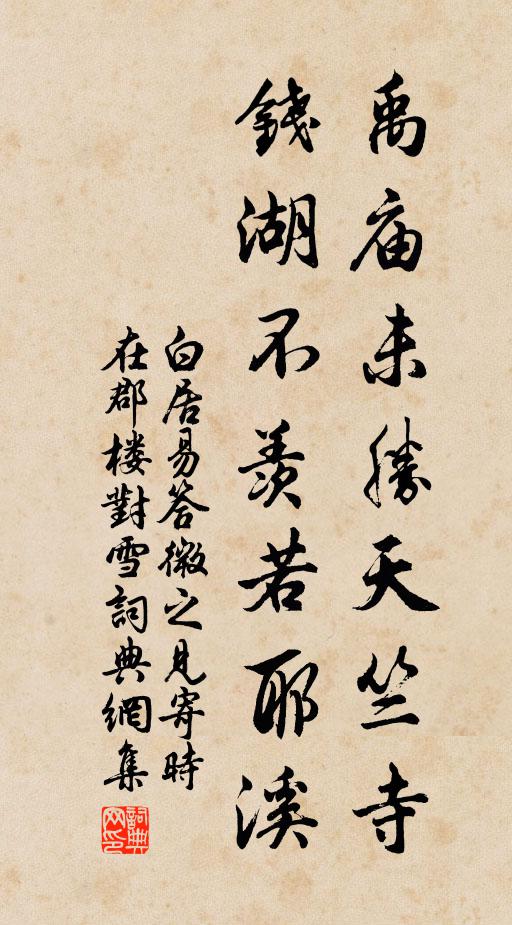 禹庙未勝天竺寺
錢湖不羨若耶溪
白居易答微之見寄時
在郡楼對雪詞典網集
詞典
网印